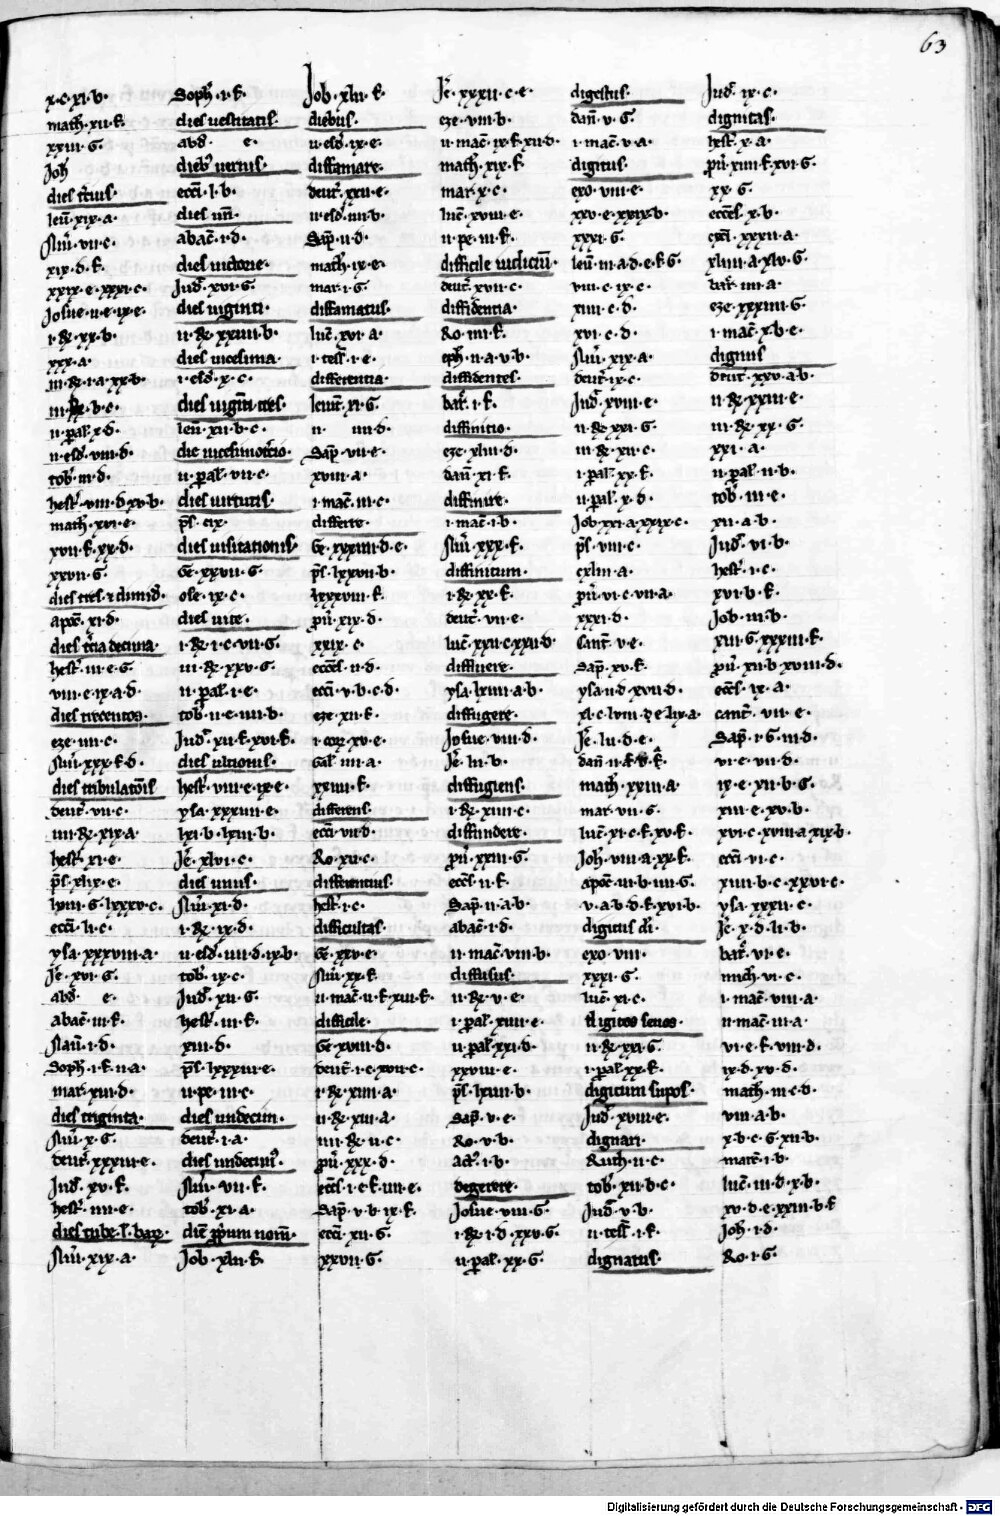 63
x·c·xi·b·
math·xii·f·
xxiii·G·
Joh
dies tercius·
leu·xix·a·
Nu·vii·c·
xix·d·f·
xxix·e·xxxi·c·
Josue·ii·e·ix·e·
i·Re·xx·b·
xxx·a·
iii·Re·i·a·xx·b·
ii·pal·x·d·
ii·esd·viii·d·
tob·iii·d·
hest·viii·d·xv·b·
math·xvi·e·
xvii·f·xx·d·
xxvii·G·
dies tres·et dimid·
apoc·xi·d·
dies tercia decima·
hest·iii·e·G·
viii·c·ix·a·d·
dies trecentos·
eze·iiii·c·
Nu·xxx·f·d·
dies tribulationis
deut·vii·c·
iiii·Re·xix·a·
hest·xi·e·
ps·xlix·e·
lviii·G·lxxxv·c·
ecci·li·c·
ysa·xxxviii·a·
Je·xvi·G·
abd· e·
abac·iii·f·
Nau·i·d·
Soph·i·f·ii·a·
mar·xiii·d·
dies triginta·
Nu·x·G·
deut·xxxiii·e·
Jud·xv·f·
hest·iiii·e·
Nu·xix·a·
Soph·i·f·
dies vetustatis·
abd· e·
dieb vernis·
ecci·l·b·
dies un·
abac·i·d·
dies victorie·
Jud·xvi·G·
dies viginti·
ii·Re·xxiiii·b·
dies vicesima·
i·esd·x·c·
dies viginti tres·
leu·xii·b·c·
ii·pal·vii·c·
dies virtutis·
ps·cix·
dies visitationis·
Ge·xxvii·G·
ose·ix·c·
dies vite·
i·Re·i·c·vii·G·
iii·Re·xxv·G·
ii·pal·i·e·
tob·ii·e·iiii·b·
Jud·xii·f·xvi·f·
dies ultionis·
hest·viii·e·ix·e·
ysa·xxxiiii·e·
lxi·b·lxiii·b·
Je·xlvi·c·
dies unus·
Nu·xi·d·
i·Re·ix·d·
ii·esd·iiii·d·ix·b·
tob·ix·c·
Jud·xii·G·
hest·iii·f·
xiii·d·
ps·lxxxiii·e·
ii·pe·iii·c·
dies undecim·
deut·i·a·
dies undecim·
Nu·vii·f·
tob·xi·a·
Job·xlii·f·
Job·xlii·f·
diebus·
ii·esd·ix·e·
diffamare·
deut·xxii·e·
ii·esd·iiii·b·
Sap·ii·d·
math·ix·e·
mar·i·G·
diffamatus·
luc·xvi·a·
i·tess·i·e·
differentia·
leuit·xi·G·
ii· iiii·d·
Sap·vii·e·
xviii·a·
i·mac·iii·c·
differre·
Ge·xxxiiii·d·e·
ps·lxxvii·b·
lxxxviii·f·
pu·xix·d·
xxix·c·
ecces·ii·d·
ecci·v·b·c·d·
eze·xii·f·
i·cor·xv·e·
Gal·iiii·a·
xxiiii·f·
differens·
ecci·vii·b·
Ro·xii·c·
differentius·
hest·i·c·
difficultas·
Ge·xxv·e·
Nu·xx·f·
ii·mac·ii·f·xiii·f·
difficile·
Ge·xviii·d·
deut·i·c·xvii·c·
i·Re·xiiii·a·
ii·Re·xiii·a·
iiii·Re·ii·c·
pu·xxx·d·
ecces·i·e·f·vii·e·
Sap·v·b·ix·f·
ecci·xii·G·
xxvii·G·
Je·xxxii·c·e·
eze·viii·b·
ii·mac·ix·f·xii·d·
math·xix·f·
mar·x·c·
luc·xviii·e·
ii·pe·iii·f·
deut·xvii·c·
diffidentia·
Ro·iiii·f·
eph·ii·a·v·b·
diffidentes·
bar·i·f·
diffinitio·
eze·xliii·d·
dan·xi·f·
diffinire·
i·mac·i·b·
Nu·xxx·f·
diffinitum·
i·Re·xx·f·
deut·vii·e·
luc·xxii·c·xxii·d·
diffluere·
ysa·lxiiii·a·b·
diffugere·
Josue·viii·d·
Je·lii·b·
diffugiens·
i·Re·xiiii·c·
diffundere·
pu·xxiii·G·
ecces·ii·f·
Sap·ii·a·b·
abac·i·d·
ii·mac·viii·b·
diffusus·
ii·Re·v·e·
i·pal·xiiii·e·
ii·pal·xxi·d·
xxviii·e·
ps·lxiii·b·
Sap·v·e·
Ro·v·b·
act·i·b·
degerere·
Josue·viii·G·
i·Re·i·d·xxv·G·
ii·pal·xx·G·
digestus·
dan·v·G·
i·mac·v·a·
digitus·
exo·viii·e·
xxv·e·xxix·b·
xxxi·G·
leu·iii·a·d·e·f·G·
viii·c·ix·c·
xiii·c·d·
xvi·c·d·
Nu·xix·a·
deut·ix·c·
Jud·xviii·e·
ii·Re·xxi·G·
iii·Re·xii·c·
i·pal·xx·f·
ii·pal·x·d·
Job·xxi·a·xxix·c·
ps·viii·c·
cxliii·a·
pu·vi·c·vii·a·
xxxi·d·
cant·v·e·
Sap·xv·f·
ysa·ii·d·xvii·d·
xl·c·lviii·d·e·lix·a·
Je·lii·d·e·
math·xxiii·a·
mar·vii·G·
luc·xi·c·f·xv·f·
Joh·viii·a·xx·f·
apoc·iii·b·iiii·G·
v·a·b·d·f·xvi·b·
digitus di·
exo·viii·
xxxi·G·
luc·xi·c·
digitos senos·
ii·Re·xxi·G·
i·pal·xx·f·
digitum supos·
Jud·xviii·e·
dignari·
Ruth·ii·c·
tob·xii·b·c·
Jud·v·b·
ii·tess·i·f·
dignatus·
Jud·ix·c·
dignitas·
hest·x·a·
pu·xiiii·f·xvi·G·
xx·G·
ecces·x·b·
ecci·xxxii·a·
xliiii·a·xlv·G·
bar·iiii·a·
eze·xxxiiii·G·
i·mac·x·b·e·
dignus
deut·xxv·a·b·
ii·Re·xxiii·e·
iii·Re·xx·G·
xxi·a·
ii·pal·ii·b·
tob·iii·e·
xii·a·b·
Jud·vi·b·
hest·i·c·
xvi·b·f·
Job·iii·b·
xvii·G·xxxiii·f·
pu·xii·b·xviii·d·
ecces·ix·a·
cant·vii·e·
Sap·i·G·iii·d·
vi·c·vii·d·
ix·e·xii·b·G·
xiii·e·xv·b·
xvi·c·xviii·a·xix·b·
ecci·vi·c·
xiiii·b·c·xxvi·c·
ysa·xxxii·c·
Je·x·d·li·b·
bar·vi·e·
mich·vi·c·
i·mac·viii·a·
ii·mac·iii·a·
vi·e·f·viii·d·
ix·d·xv·d·
math·iii·c·d·
viii·a·b·
x·b·c·G·xii·b·
marc·i·b·
luc·iii·d·x·b·
xv·d·e·xxiii·b·f·
Joh·i·d·
Ro·i·G·
Digitalisierung gefördert durch die Deutsche Forschungsgemeinschaft - DFG